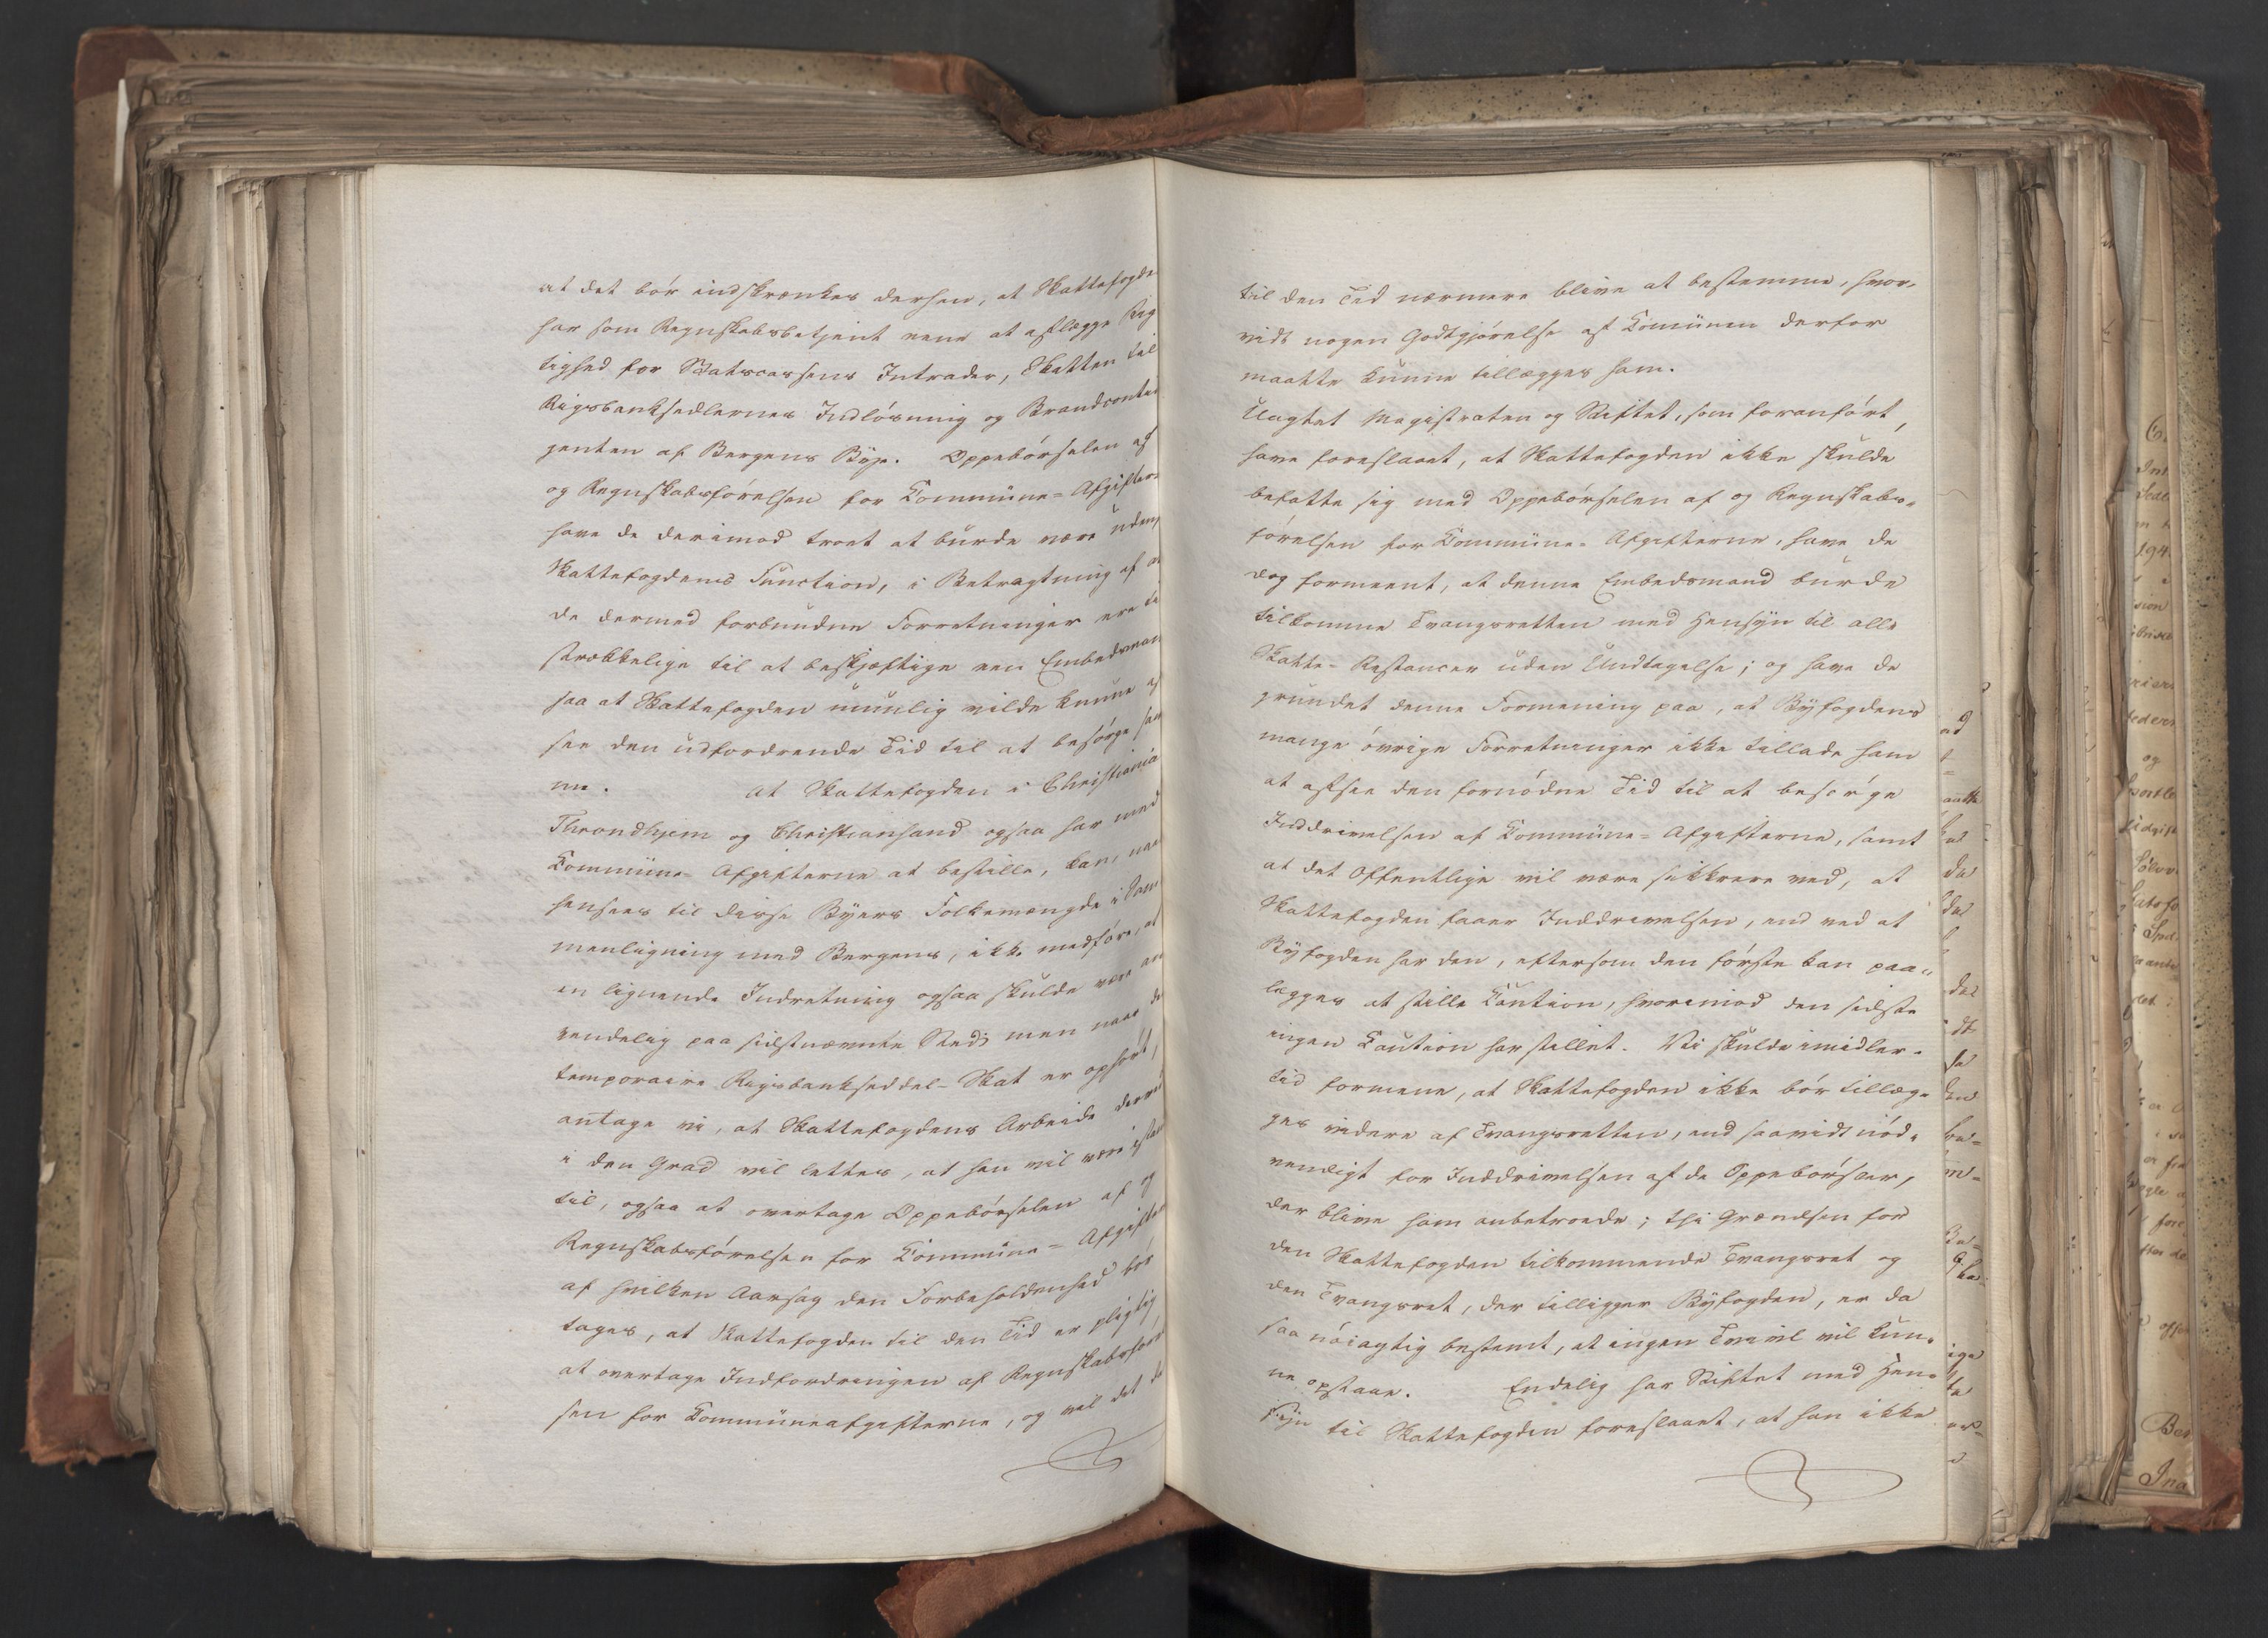 at det bör indskrænkes derhen, at Skattefogde
har som Regnskabsbetjent ene at aflægge Rig
tighed for Statscassens Intrader, Skatten til
Rigsbanksedlernes Indlösning og Brandcontin
genten af Bergens Bÿe. Oppebörselen af
og Regnskabsförelsen for Commüne-Afgifter
have de derimod troet at bürde være üden
Skattefogdens Fünction, i Betragtning af at
de dermed forbundne Forretninger ere til
strækkelige til at beskjæftige een Embedsman
saa at Skattefogden ümülig vilde künne af
see den üdfordrende Tid til at besörge sam
me. at Skattefogden i Christiania
Throndhjem og Christiansand ogsaa har med
Commüne-Afgifterne at bestille, kan, naar
hensees til disse Bÿers Folkemængde i Sam
menligning med Bergens, ikke medföre, at
en lignende Indretning ogsaa skülde være an
vendelig paa sidstnævnte Sted; men naar de
temporaire Rigsbankseddel-Skat er ophört,
antage vi, at Skattefogdens Arbeide derved
i den Grad vil lettes, at han vil være istand
til, ogsaa at overtage Oppebörselen af og
Regnskabsförelsen for Commüne-Afgifter
af hvilken Aarsag den Forbeholdenhed bör
tages, at Skattefogden til den Tid er pligtig
at overtage Indfordringen af Regnskabsför
sen for Commüneafgifterne, og vil det da
til den Tid nærmere blive at bestemme, hvor-
vidt nogen Godtgjörelse af Comünen derfor
maatte künne tillægges ham.
Uagtet Magistraten og Stiftet, som foranfört,
have foreslaaet, at Skattefogden ikke skülde
befatte sig med Oppebörselen af og Regnskabs-
förelsen for Commüne-Afgifterne, have de
dog formeent, at denne Embedsmand bürde
tilkomme Tvangsretten med Hensÿn til alle
Skatte-Restancer üden Undtagelse; og have de
gründet denne Formening paa, at Bÿfogdens
mange övrige Forretninger ikke tillade ham
at afsee den fornödne Tid til at besörge
Inddrivelsen af Commüne-Afgifterne, samt
at det Offentlige vil være sikkrere ved, at
Skattefogden faaer Inddrivelsen, end ved at
Bÿfogden har den, eftersom den förste kan paa-
lægges at stille Caütion, hvorimod den sidste
ingen Caution har stillet. Vi skulde imidler-
tid formene, at Skattefogden ikke bör tillæg-
ges videre af Tvangsretten, end saavidt nöd-
vendigt for Inddrivelsen af de Oppebörsler,
der blive ham anbetroede; thi Grændsen for
den Skattefogden tilkommende Tvangsret og
den Tvangsret, der tilligger Bÿfogden, er da
saa nöiagtig bestemt, at ingen Tvivl vil kun-
ne opstaae. Endelig har Stiftet med Hen-
sÿn til Skattefogden foreslaaet, at han ikke